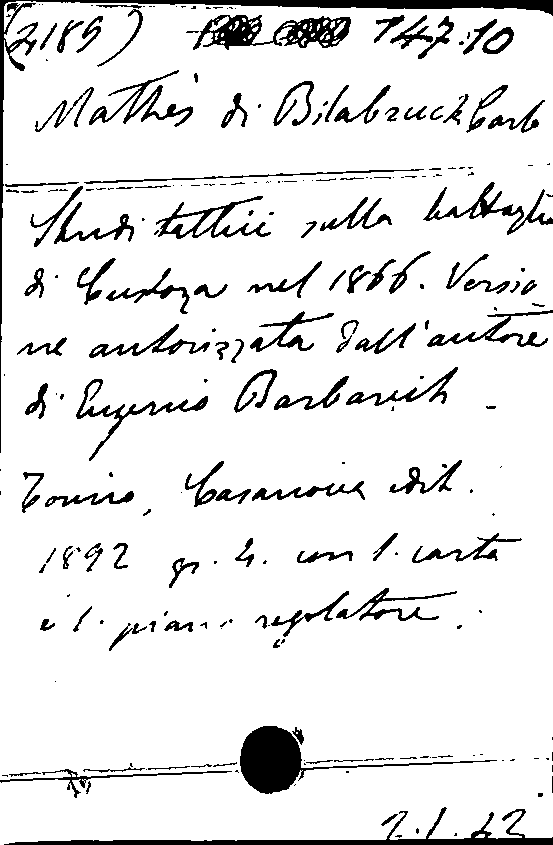 (2189) 147.10
Mathes di Bilabruck Carb
Studi tattici sulla battaglia
di Custoza nel 1866. Versio
ne autorizzata dall'autore
di Eugenio Barbarich -
Torino, Casanova edit.
1892 gr. 4. con 1. carta
e 1. piano regolatore.
2.1.42